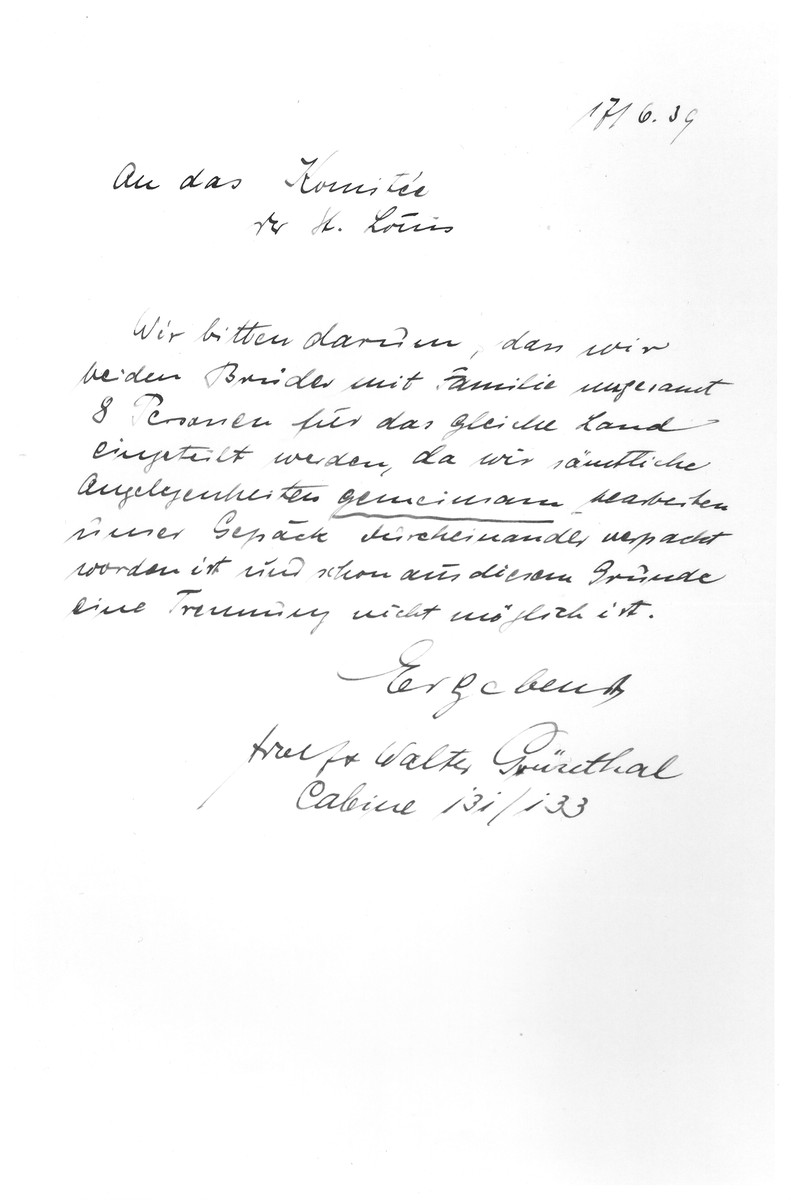 17/6.39
An das Komitée
der St. Louis
Wir bitten darum, dass wir
beiden Brüder mit Familie insgesamt
8 Personen für das gleiche Land
eingeteilt werden, da wir sämtliche
Angelegenheiten gemeinsam bearbeiten
unser Gepäck durcheinander verpackt
worden ist und schon aus diesem Grunde
eine Trennung nicht möglich ist.
Ergebenst
Walter Grünthal
Cabine 131/133